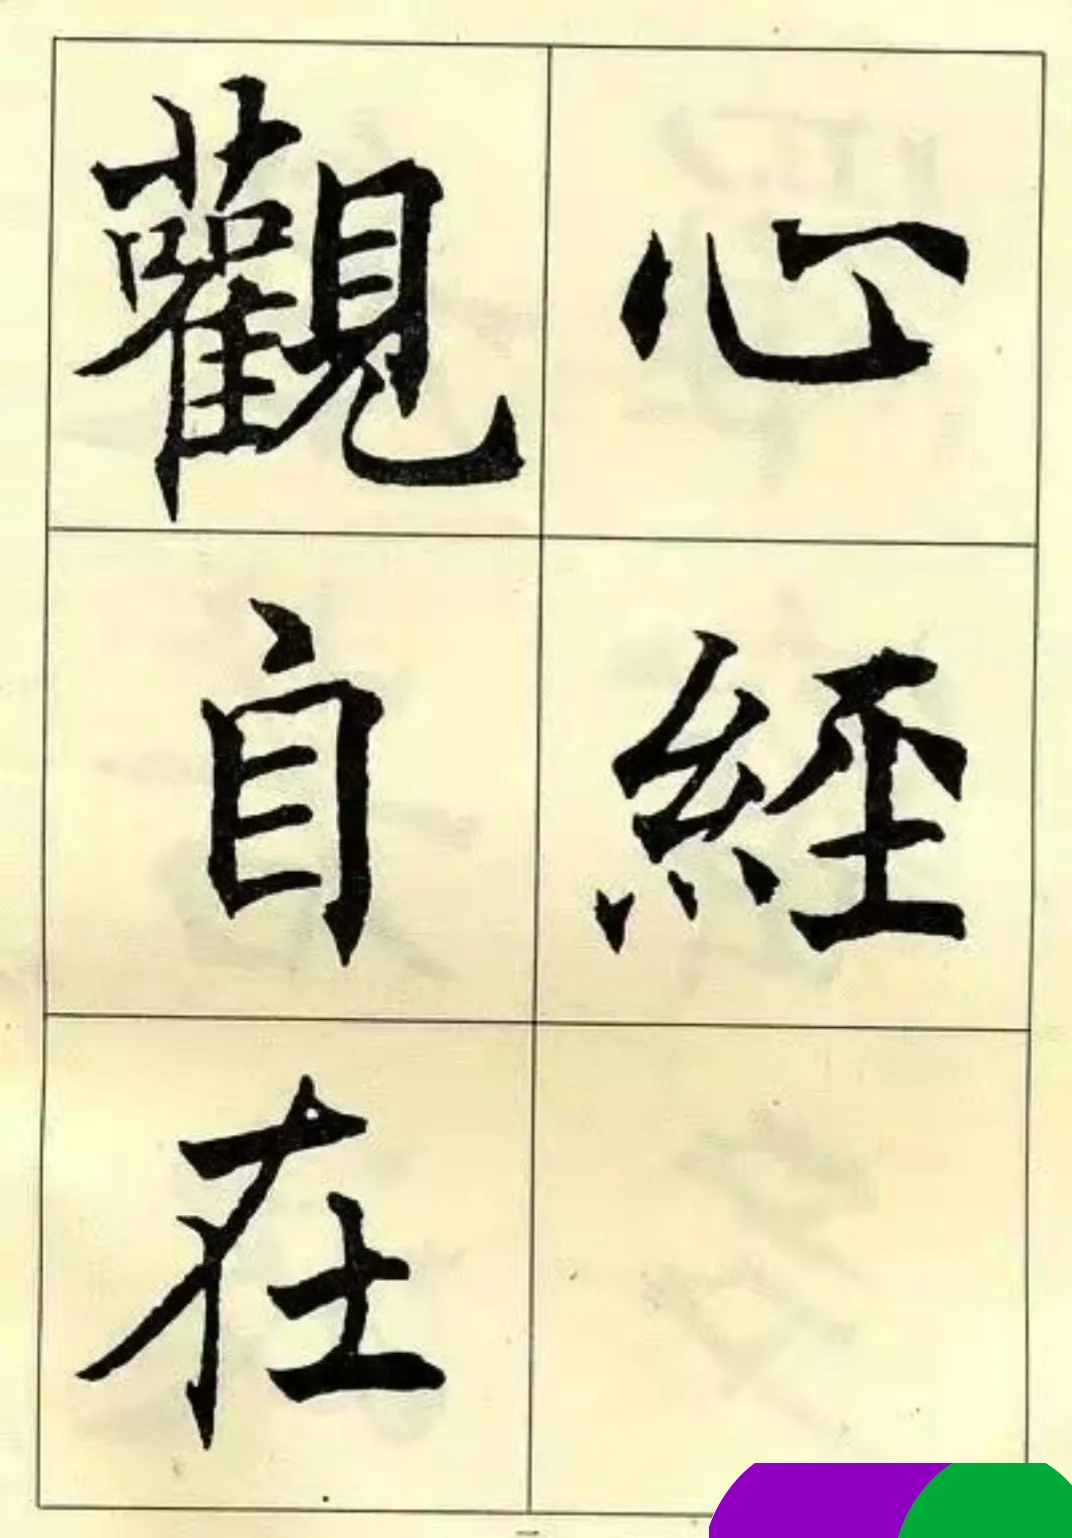 心經
觀自在